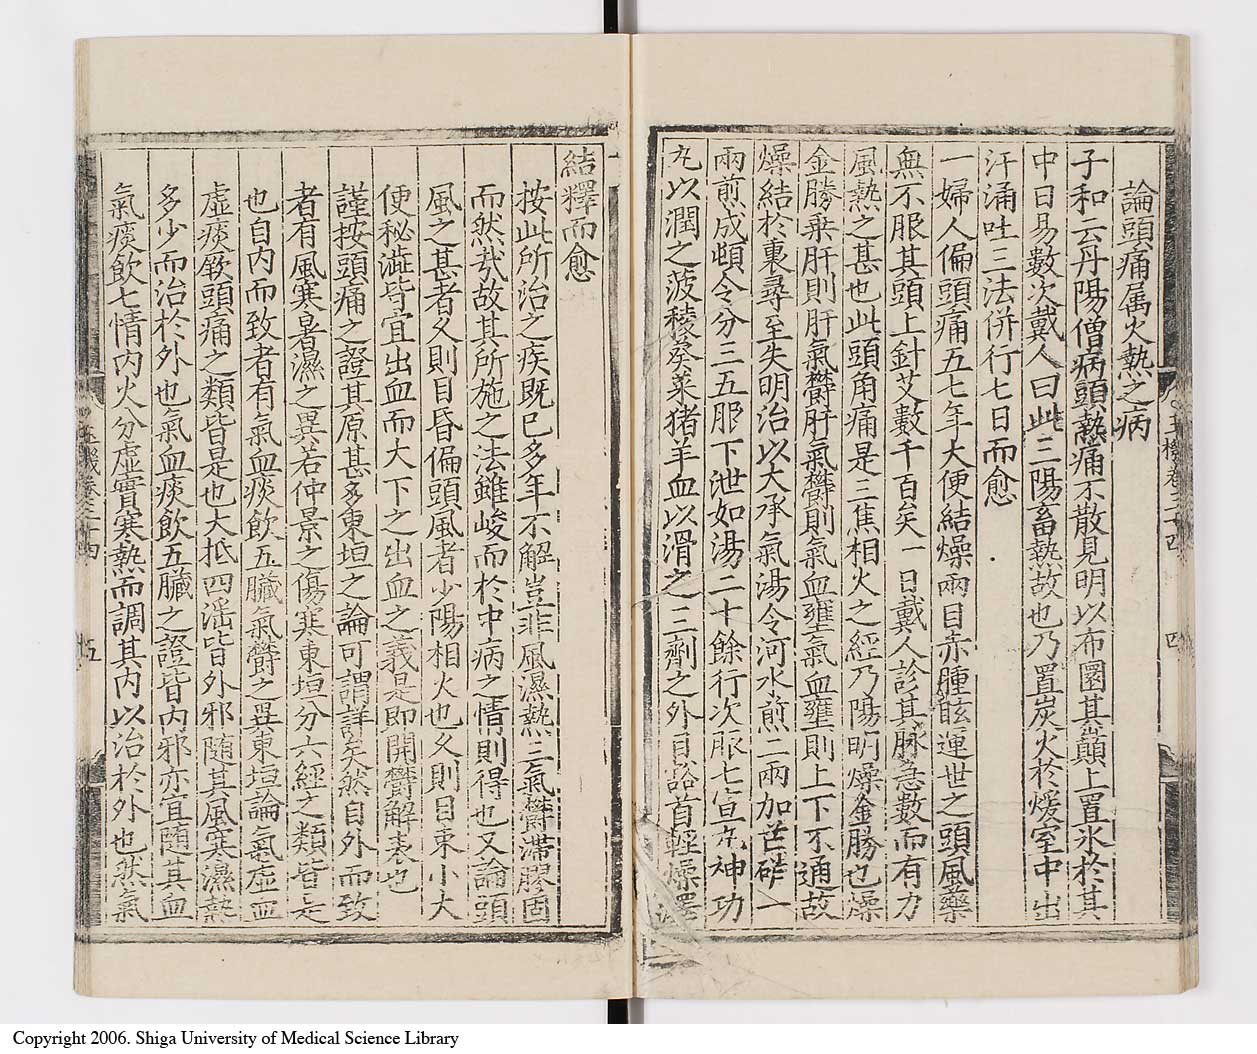 論頭痛属火熱之病
子和云丹陽僧病頭熱痛不散見明以布圜其巓上置氷於其
中日易數次戴人曰此三陽畜熱故也乃置炭火於煖室中出
汗涌吐三法併行七日而愈
一婦人偏頭痛五七年大便結燥兩目赤腫眩運世之頭風藥
無不服其頭上針艾數千百矣一日戴人診其脉急數而有力
風熱之甚也此頭角痛是三焦相火之經乃陽明燥金勝也燥
金勝乗肝則肝氣欝肝氣欝則氣血壅氣血壅則上下不通故
燥結於裏尋至失明治以大承氣湯令河水煎二兩加芒硝一
兩煎成頓令分三五服下泄如湯二十餘行次服七宣丸神功
丸以潤之菠稜葵菜猪羊血以滑之三劑之外目豁首輕燥澤
結釋而愈
按此所治之疾既已多年不解豈非風濕熱三氣欝滯膠固
而然㢤故其所施之法雖峻而於中病之情則得也又論頭
風之甚者久則目昏偏頭風者少陽相火也久則目束小大
便秘澁皆宜出血而大下之出血之義是即開欝解表也
謹按頭痛之證其原甚多東垣之論可謂詳矣然自外而致
者有風寒暑濕之異若仲景之傷寒東垣分六經之類皆是
也自内而致者有氣血痰飲五臟氣欝之異東垣論氣虚血
虚痰厥頭痛之類皆是也大抵四淫皆外邪随其風寒濕熱
多少而治於外也氣血痰飲五臟之證皆内邪亦宜随其血
氣痰飲七情内火分虚實寒熱而調其内以治於外也然氣
玉機卷三十四
四
Copyright 2006. Shiga University of Medical Science Library